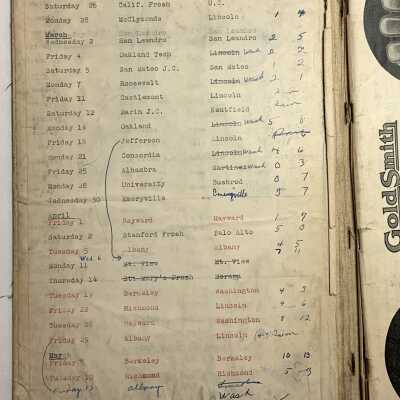 Saturday 26 Calif. Frosh U.C.
Monday 28 McClymonds Lincoln 1 4
March San Leandro
Wednesday 2 San Leandro San Leandro 2 5
Friday 4 Oakland Tech Lincoln Wash 0 7
Saturday 5 San Mateo J.C. San Mateo 1 2
Monday 7 Roosevelt Lincoln Wash 1
Friday 11 Castlemont Lincoln Rain
Saturday 12 Marin J.C. Kentfield Rain
Monday 14 Oakland Lincoln Wash 5
Friday 18 Jefferson Lincoln
Monday 21 Concordia Lincoln Wash 4 6
Friday 25 Alhambra Martinez Wash 0 3
Monday 28 University Bushrod 0 7
Wednesday 30 Emeryville Emeryville 9 7
April
Friday 1 Hayward Hayward 1 9
Saturday 2 Stanford Frosh Palo Alto 5 0
Tuesday 5 Albany Albany 4 5
Wed 6 7 11
Monday 11 Mt. View Mt. View
Thursday 14 St. Mary's Frosh Moraga
Tuesday 19 Berkeley Washington 4 3
Friday 22 Richmond Lincoln 9 6
Tuesday 26 Hayward Washington 8 12
Friday 29 Albany Lincoln
May
Friday 6 Berkeley Berkeley 10 13
Tuesday 10 Richmond Richmond 5 3
Friday 13 Albany Wash
GoldSmith